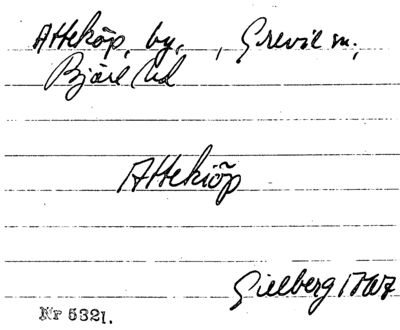 Atteköp, by, , Grevie m,
Bjäre hd
Attekiöp
Gillberg 1767
Nr 5321.